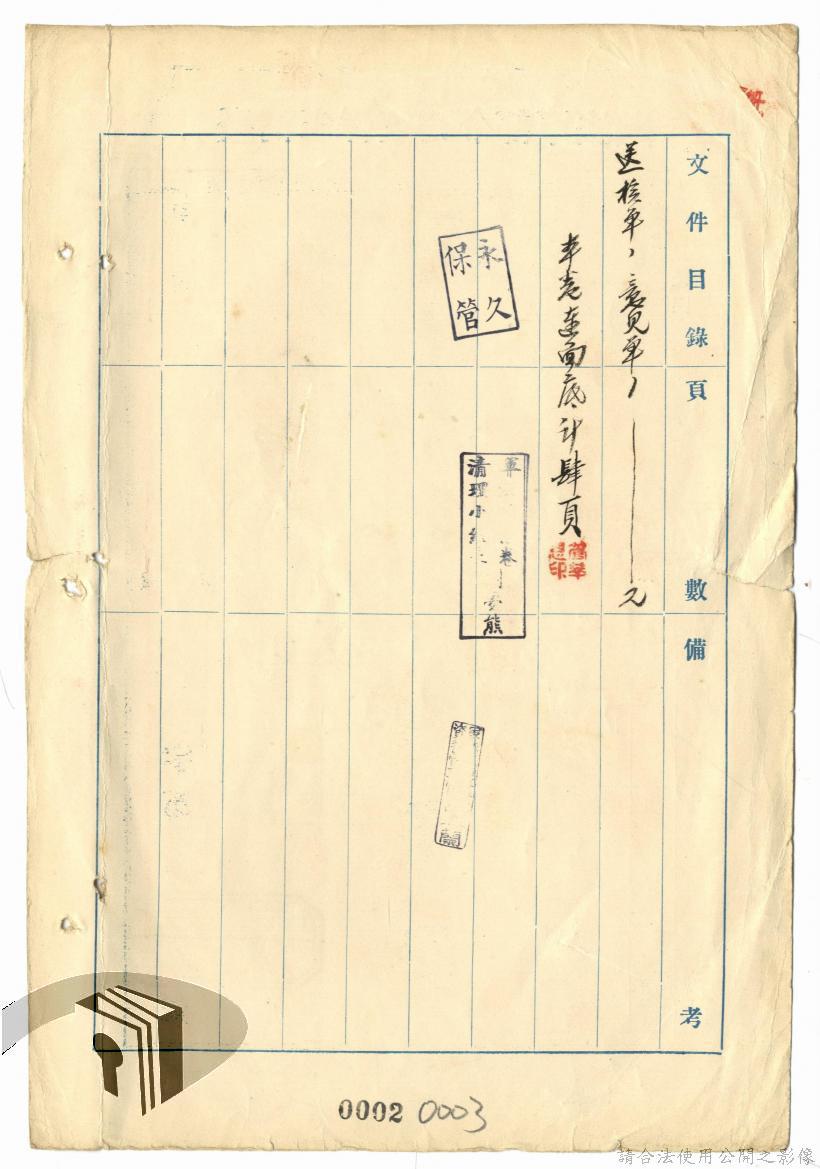 文件目錄 頁數 備考
送核單、意見單、 元
本卷連面底計肆頁
永久
保管
清理小組
卷
熊
0002 0003
請合法使用公開之影像